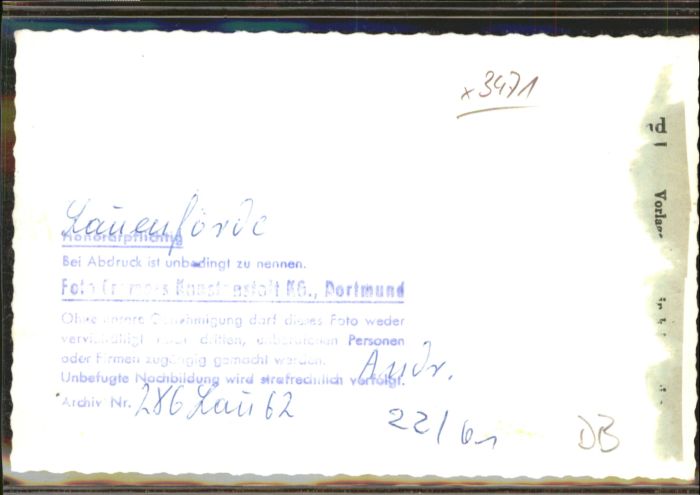 x 3471
Lauenförde
Honorarpflichtig
Bei Abdruck ist unbedingt zu nennen.
Foto Cramers Kunstanstalt KG., Dortmund
Ohne unsere Genehmigung darf dieses Foto weder
vervielfältigt noch dritten, unberufenen Personen
oder Firmen zugängig gemacht werden.
Unbefugte Nachbildung wird strafrechtlich verfolgt.
Andr.
Archiv Nr. 286 Lau 62
22/61
DB